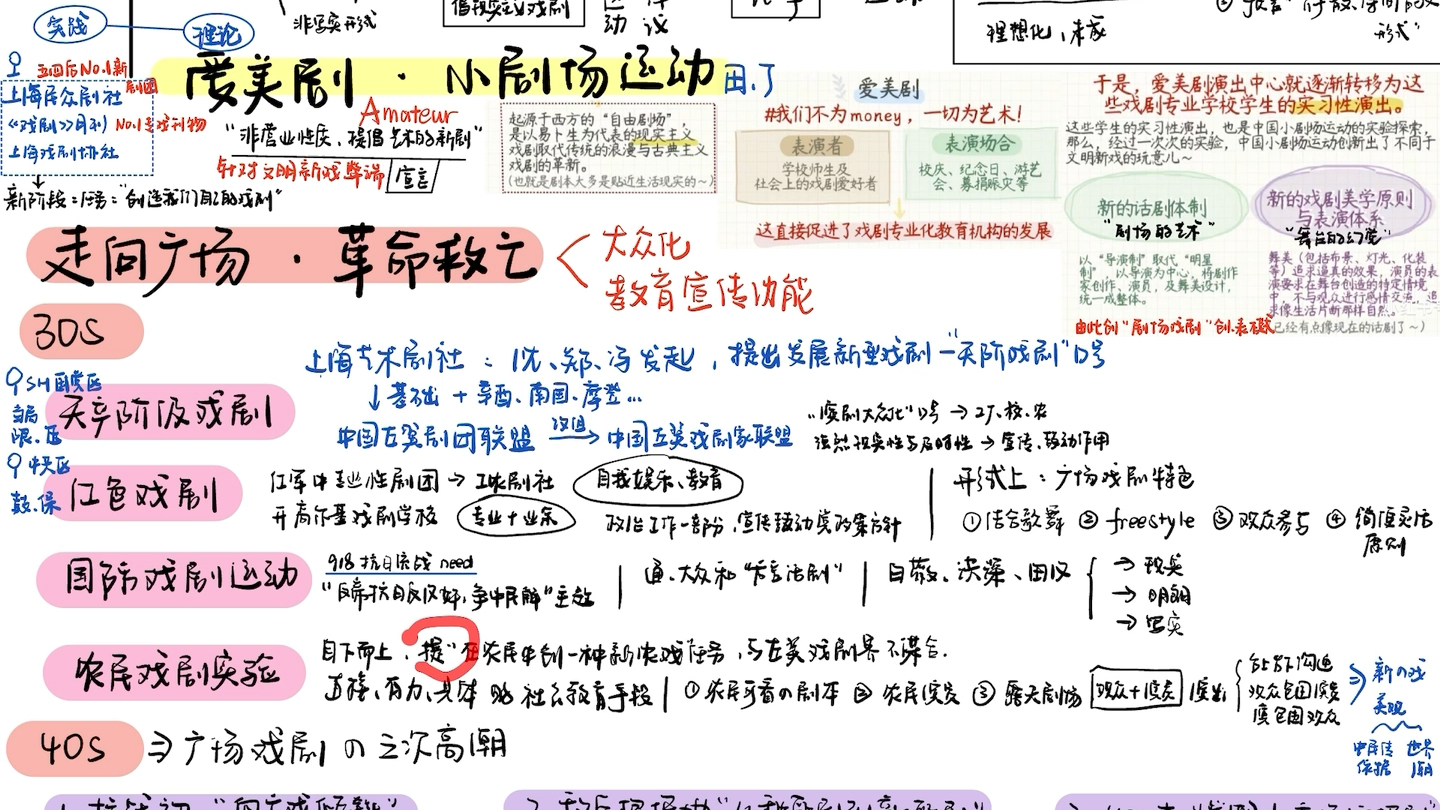 实践
理论
非写实形式
倡拟实主义戏剧
动 议
理想化、未家
形式"
五四后No.1新剧团
上海民众剧社
《戏剧》月刊 No.1专戏刊物
上海戏剧协社
新阶段=任务="创造我们自己的戏剧"
爱美剧 · 小剧场运动 田.丁
Amateur
"非营业性质、提倡艺术的新剧"
针对文明新戏弊端 宣言
起源于西方的"自由剧场",
是以易卜生为代表的现实主义
戏剧取代传统的浪漫与古典主义
戏剧的革新。
(也就是剧本大多是贴近生活现实的~)
爱美剧
#我们不为money,一切为艺术!
表演者
学校师生及
社会上的戏剧爱好者
表演场合
校庆、纪念日、游艺
会、募捐赈灾等
这直接促进了戏剧专业化教育机构的发展
于是,爱美剧演出中心就逐渐转移为这
些戏剧专业学校学生的实习性演出。
这些学生的实习性演出,也是中国小剧场运动的实验探索,
那么,经过一次次的实验,中国小剧场运动创新出了不同于
文明新戏的玩意儿~
新的话剧体制
"剧场的艺术"
以"导演制"取代"明星
制",以导演为中心,将剧作
家创作、演员,及舞美设计,
统一成整体。
新的戏剧美学原则
与表演体系
"舞台的幻觉"
舞美(包括布景、灯光、化装
等)追求逼真的效果,演员的表
演要求在舞台创造的特定情境
中,不与观众进行感情交流,追
求像生活片断那样自然。
由此创"剧场戏剧"创.表.破
已经有点像现在的话剧了~)
走向广场 · 革命救亡
大众化
教育宣传功能
30s
上海艺术剧社:沈、郑、冯发起,提出发展新型戏剧—"无阶戏剧"口号
↓基础 + 辛酉、南国、摩登...
中国左翼剧团联盟 改组→ 中国左翼戏剧家联盟
"演剧大众化"口号 → 工厂、校、农
→ 宣传、鼓动作用
SH国党区
当局
限、压
无产阶级戏剧
中央区
鼓、保
红色戏剧
红军中专业性剧团 → 工农剧社 自我娱乐、教育
开高尔基戏剧学校 专业+业余 政治工作一部分,宣传鼓动党政策方针
形式上:广场戏剧特色
①结合歌舞 ② freestyle ③ 观众参与 ④ 简便灵活
原则
国防戏剧运动
918抗日救战need
通、大众和"方言话剧"
→ 现实
→ 明朗
→ 写实
农民戏剧实验
自下而上,提"在农民中创一种新农戏"任务,与左美戏剧界不谋合.
直接、有力、具体 的 社会教育手段
①农民可看の剧本 ② 农民演员 ③ 露天剧场 观众+演员 演出
台上台下沟通
观众包围演员
演员包围观众
新の戏
美观
中民传 世界
依据 潮
40s ⇒ 广场戏剧 の 三次高潮